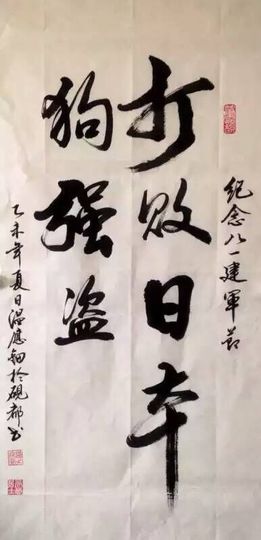 纪念八一建軍节
打败日本
狗強盗
乙未年夏日温應钿於砚都书